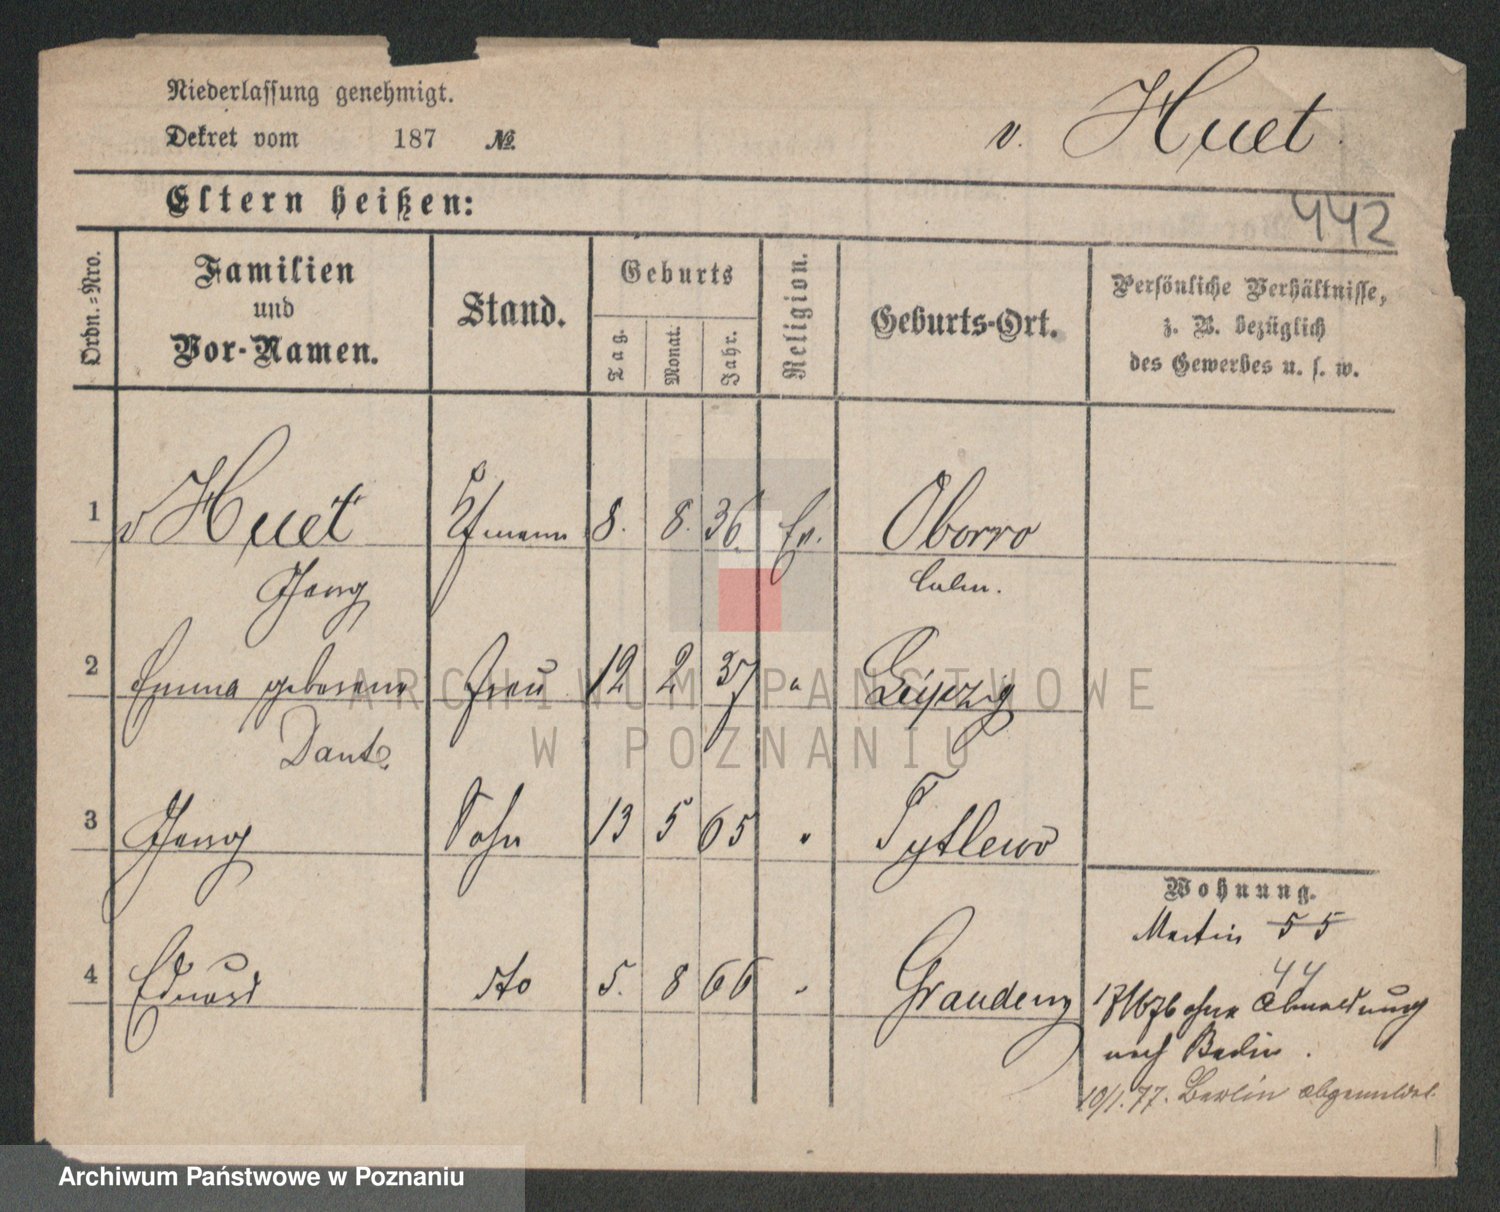 Niederlassung genehmigt.
Dekret vom 187 №.
v. Huet.
Eltern heißen:
442
Ordn.-Nro.
Familien
und
Vor-Namen.
Stand.
Geburts
Tag.
Monat.
Jahr.
Religion.
Geburts-Ort.
Persönliche Verhältnisse,
z. B. bezüglich
des Gewerbes u. s. w.
1 v Huet 8. 8. 36. Ev. Oborro
Culm.
2 Emma geborene Frau 12 2 37 " Leipzig
3 Sohn 13 5 65 " Tytlewo
4 Eduard dto 5. 8 66 " Graudenz
Wohnung.
Martin 55
44
ohne Abmeldung
nach Berlin.
10/1. 77. Berlin abgemeldet.
ARCHIWUM PAŃSTWOWE
W POZNANIU
Archiwum Państwowe w Poznaniu